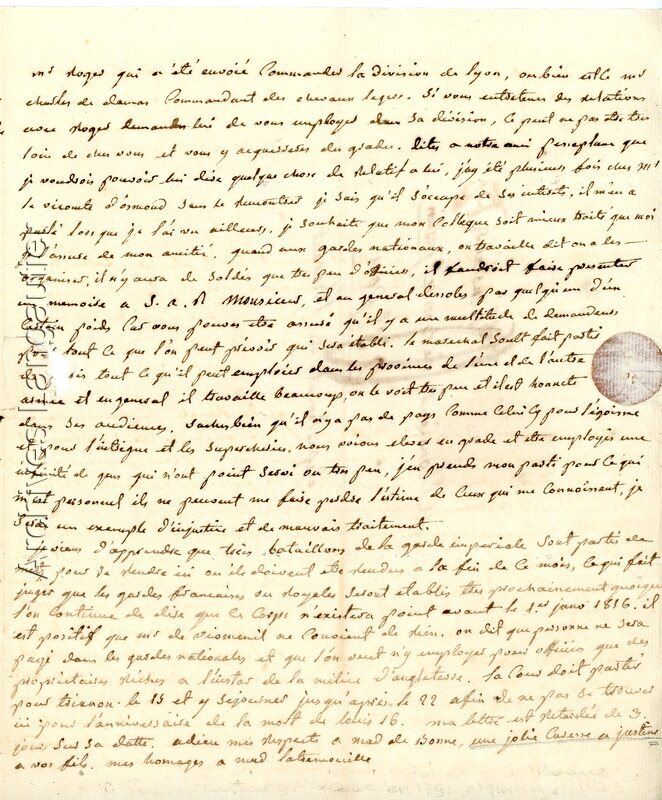 mr Roger qui a été envoié Commander la division de lyon, ou bien est Ce mr
charles de damas Commandant des chevaux legers. Si vous entretenez des Relations
avec Roger demandez lui de vous employer dans sa division, Ce peut ne pas etre tres
loin de chez vous et vous y acquererez des grades. dites a notre ami que
je voudrois pouvoir lui dire quelque chose de Relatif a lui, j'ay été plusieurs fois chez mr
le vicomte d'osmond sans le Rencontrer je sais qu'il s'occupe de ses interets, il m'en a
parlé lors que je l'ai vu ailleurs, je souhaite que mon Collegue soit mieux traité que moi
l'assure de mon amitié. quand aux gardes nationaux, on travaille dit on a les
organiser, il n'y aura de soldés que tres peu d'officiers, il faudroit faire presenter
un memoire a S. a. R Monsieur, et en general par quelqu'un d'un
Certain poids Car vous pouvez etre assuré qu'il y a une multitude de demandeurs
pour tout ce que l'on peut prevoir qui sera établi. le marechal Soult fait partir
de tout Ce qu'il peut employer dans les provinces de l'une et de l'autre
armée et en general il travaille beaucoup, on le voit tres peu et il est honnete
dans ses audiences, sachez bien qu'il n'y a pas de pays Comme Celui Cy pour l'égoisme
et pour l'intrigue et les supercheries. nous voions elever en grade et etre employés une
infinité de gens qui n'ont point servi ou tres peu, j'en prends mon parti pour Ce qui
m'est personnel ils ne peuvent me faire perdre l'estime de Ceux qui me Connoissent, je
serai un exemple d'injustice et de mauvais traitement.
je viens d'apprendre que trois bataillons de la garde imperiale sont partis de
pour se rendre ici ou ils doivent etre rendus a la fin de Ce mois, Ce qui fait
juger que les gardes francaises ou Royales seront etablis tres prochainement quoique
l'on Continue de dire que le Corps n'existera point avant le 1er janv 1816. il
est positif que mr de viomenil ne Convient de rien. on dit que personne ne sera
payé dans les gardes nationales et que l'on veut n'y employer pour officiers que des
proprietaires riches a l'instar de la milice d'angleterre. la Cour doit partir
pour trianon le 15 et y sejourner jusqu'apres le 22 afin de ne pas se trouver
ici pour l'anniversaire de la mort de louis 16. ma lettre est retardée de 3.
jours sur sa datte. adieu mes respects a mad de Bonne, une jolie Caresse a justine
a vos fils. mes homages a mad latremouille
Archives Delagavine